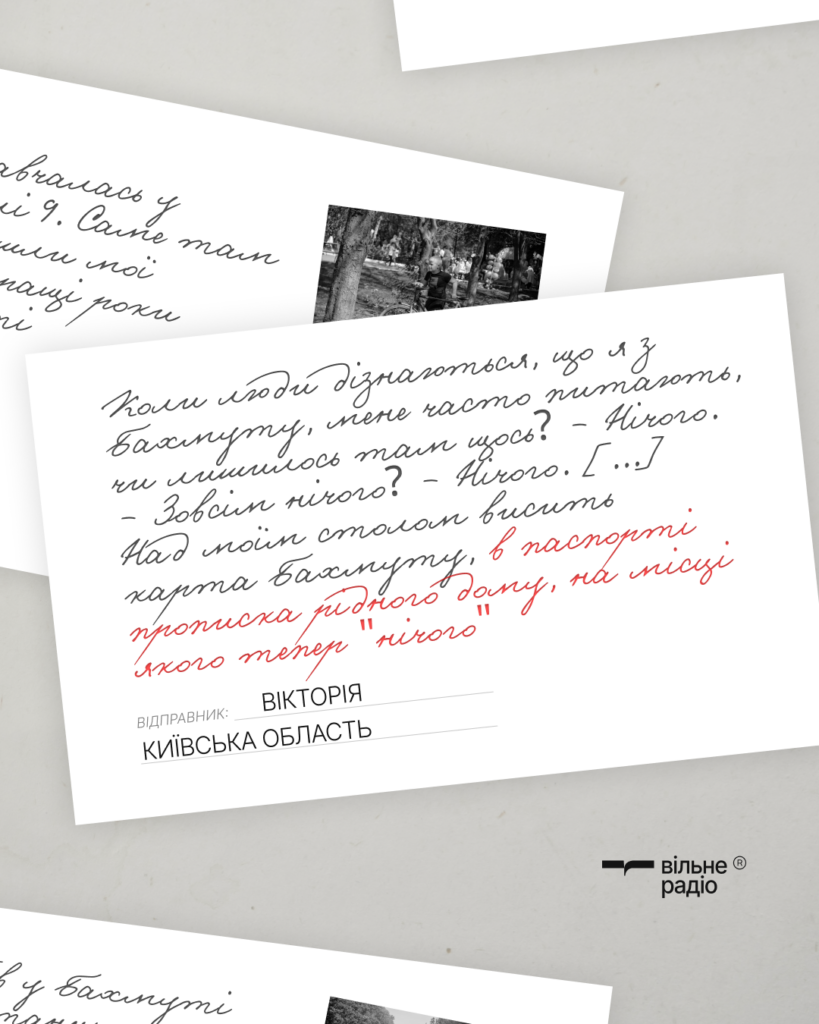 навчалась у
лі 9. Саме там
йшли мої
ращі роки
ті
Коли люди дізнаються, що я з
Бахмуту, мене часто питають,
чи лишилось там щось? – Нічого.
– Зовсім нічого? – Нічого. [...]
Над моїм столом висить
карта Бахмуту, в паспорті
прописка рідного дому, на місці
якого тепер "нічого"
ВІДПРАВНИК: ВІКТОРІЯ
КИЇВСЬКА ОБЛАСТЬ
вільне ®
радіо
в у Бахмуті